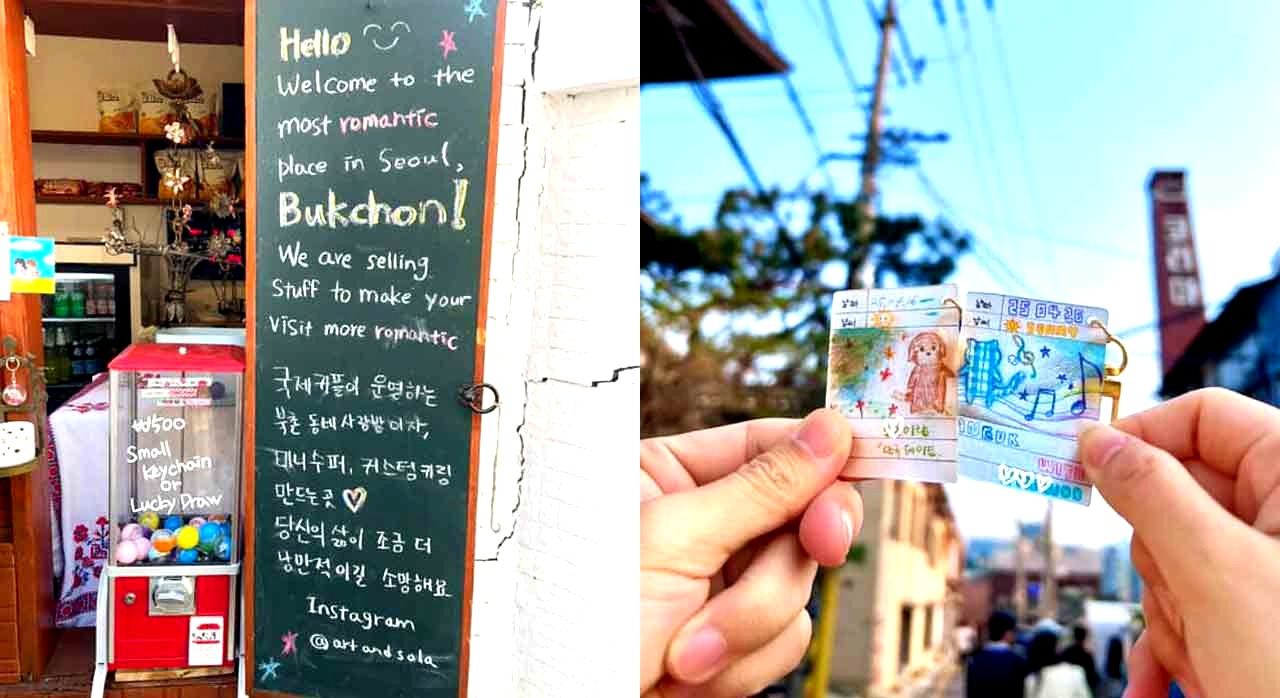 Hello
Welcome to the
most romantic
place in Seoul,
Bukchon!
We are selling
Stuff to make your
Visit more romantic
국제커플이 운영하는
북촌 동네사랑방이자,
미니수퍼, 커스텀키링
만드는곳
당신의 삶이 조금 더
낭만적이길 소망해요
Instagram
@artandsola
₩500
Small
Keychain
or
Lucky Draw
날짜
날씨
날짜 25 04 26
날씨 SUNNY